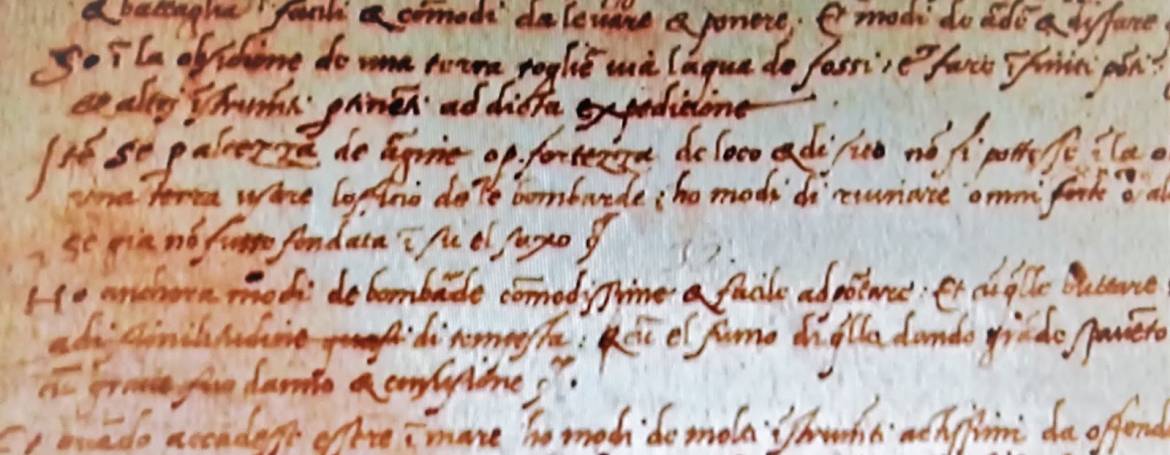 & battaglia : facili & cōmodi da levare & ponere; Et modi de ādē & disfare
So ī la obsidione de una terra toglie uia laqua de fossi, e fare īfiniti pōti
et altri īstrumti ptinēti ad dicta expedicione
Itē se p altezza de āgine op. fortezza de loco & di sito nō si pottesse ī la o
una terra usare lofficio dele bombarde; ho modi di ruinare omni forte o al
se gia nō fusse fondata ī su el saxo
Ho anchora modi de bombāde cōmodissime & facile ad portare: Et cū q̄lle buttare
adi similitudine quasi di tempesta: & cū el fumo di q̄lla dando grāde spauēto
cū graue suo danno & confusione
Et quādo accadesse essere ī mare ho modi de molti īstrumti actissimi da offend